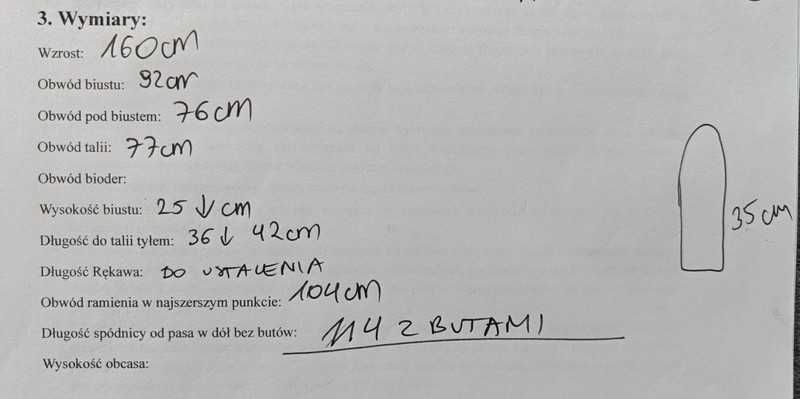 3. Wymiary:
Wzrost: 160cm
Obwód biustu: 92cm
Obwód pod biustem: 76cm
Obwód talii: 77cm
Obwód bioder:
Wysokość biustu: 25 ↓ cm
Długość do talii tyłem: 36↓ 42cm
Długość Rękawa: DO USTALENIA
Obwód ramienia w najszerszym punkcie: 104cm
Długość spódnicy od pasa w dół bez butów: 114 Z BUTAMI
Wysokość obcasa:
35cm